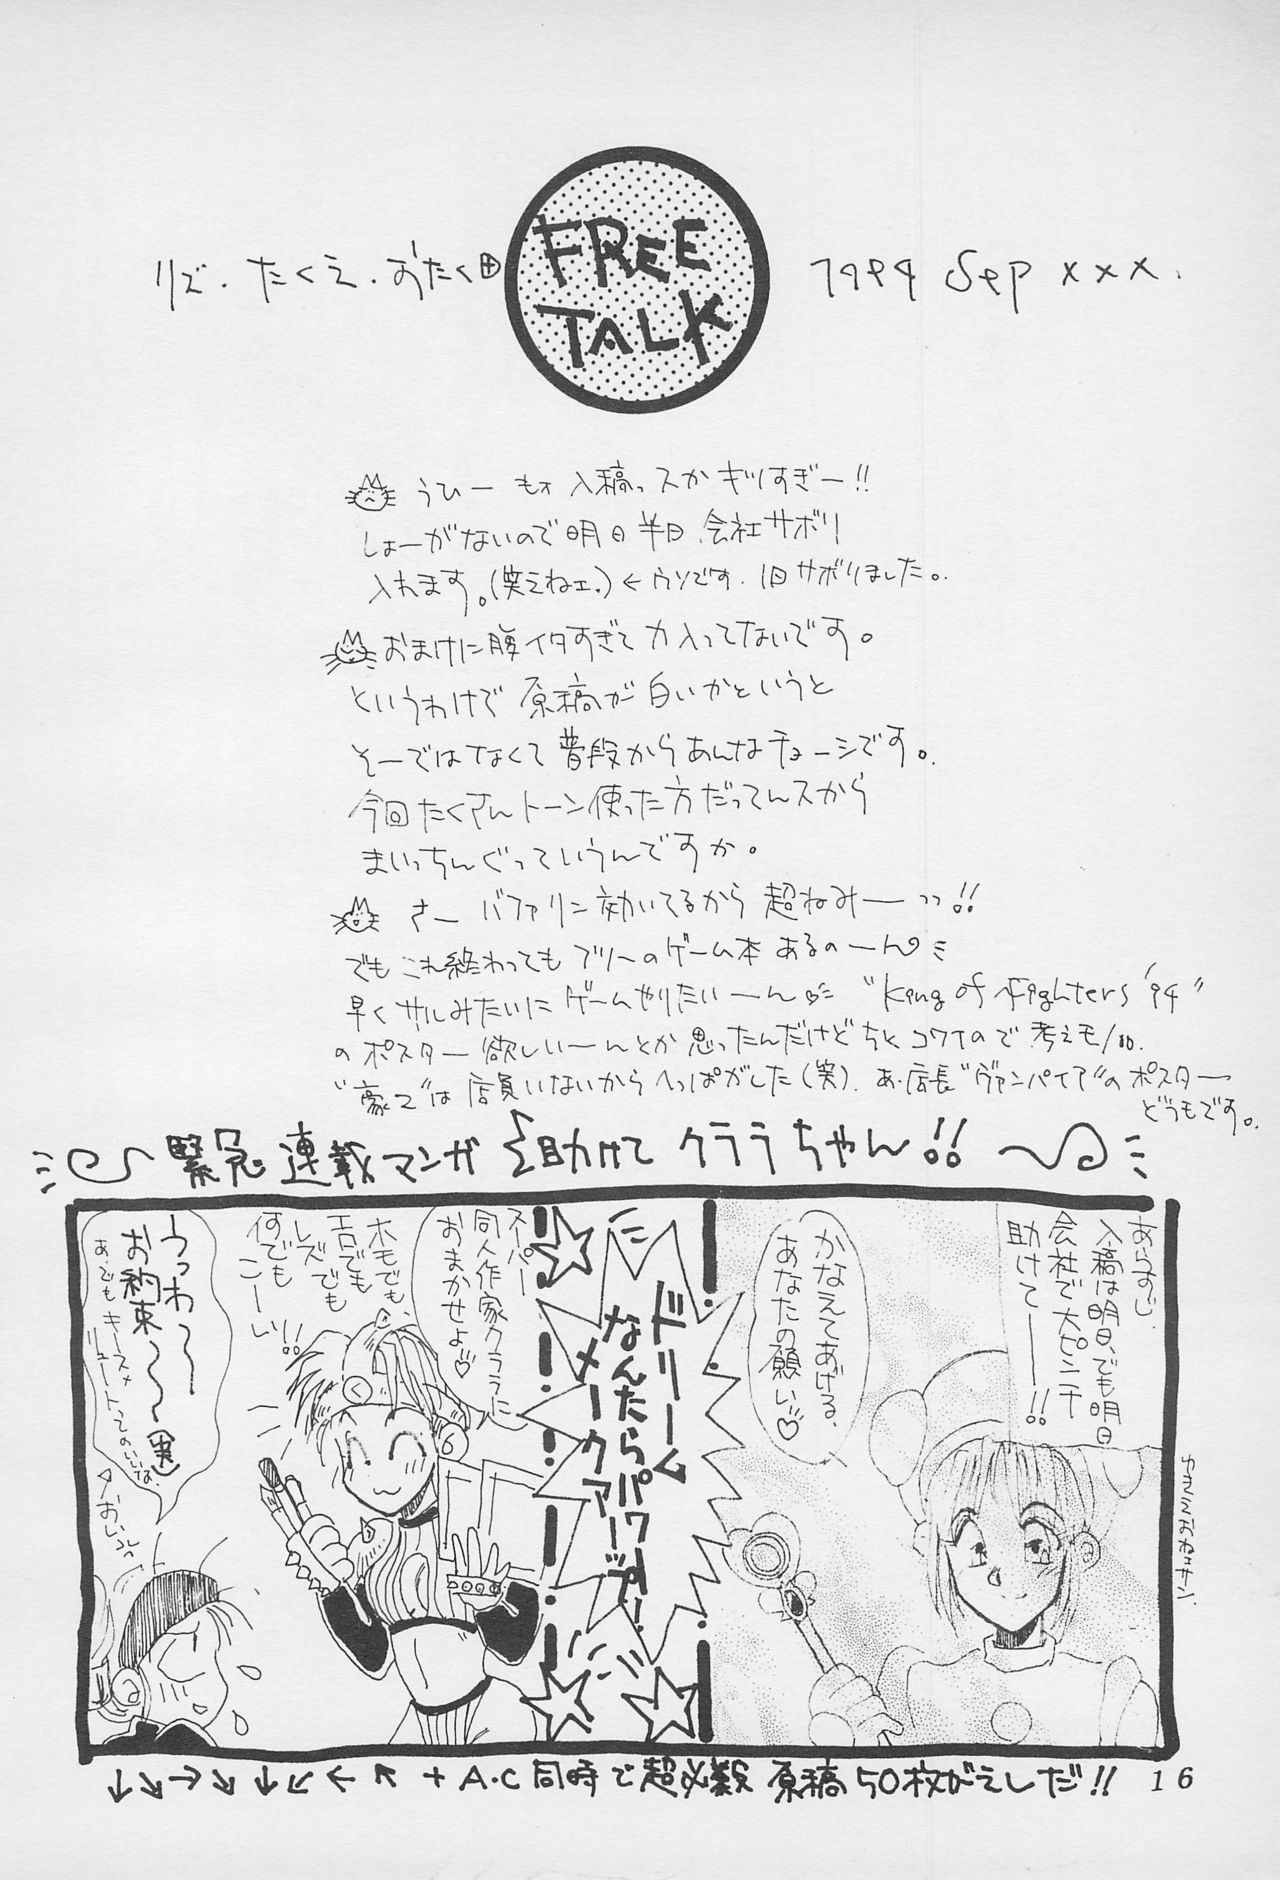 リズ・たくえ・おたく
FREE
TALK
1994 Sep xxx.
うひー もォ入稿っスかギリすぎー!!
しょーがないので明日半日、会社サボリ
入れます。(笑えねェ.)←ウソです.1日サボりました。
おまけに腹イタすぎて力入ってないです。
というわけで原稿が白いかというと
そーではなくて普段からあんなチョーシです。
今回たくさんトーン使った方だってんスから
まいっちんぐっていうんですか。
さー バファリン効いてるから超ねみーっっ!!
でもこれ終わってもフリーのゲーム本あるのーん
早くサルみたいにゲームやりたいーん "King of Fighters '94"
のポスター欲しいーんとか思ったんだけどちとコワイので考えモノ
は店員いないからへっぱがした(笑). あ、店長"ヴァンパイア"のポスター
どうもです。
緊急連載マンガ 助けてクララちゃん!!
あらすじ
入稿は明日、でも明日
会社で大ピンチ
助けてーー!!
かなえてあげる、
あなたの願い♡
ドリーム
なんたらパワー!
メークアーップ!
スーパー
同人作家クララに
おまかせよ♡
ホモでも、
エロでも
レズでも
何でも
こーい!!
うっわ〜〜
お約束〜〜(実)
↓↘→↘↓↙←↖+A・C同時で超必殺 原稿50枚がえしだ!!
16